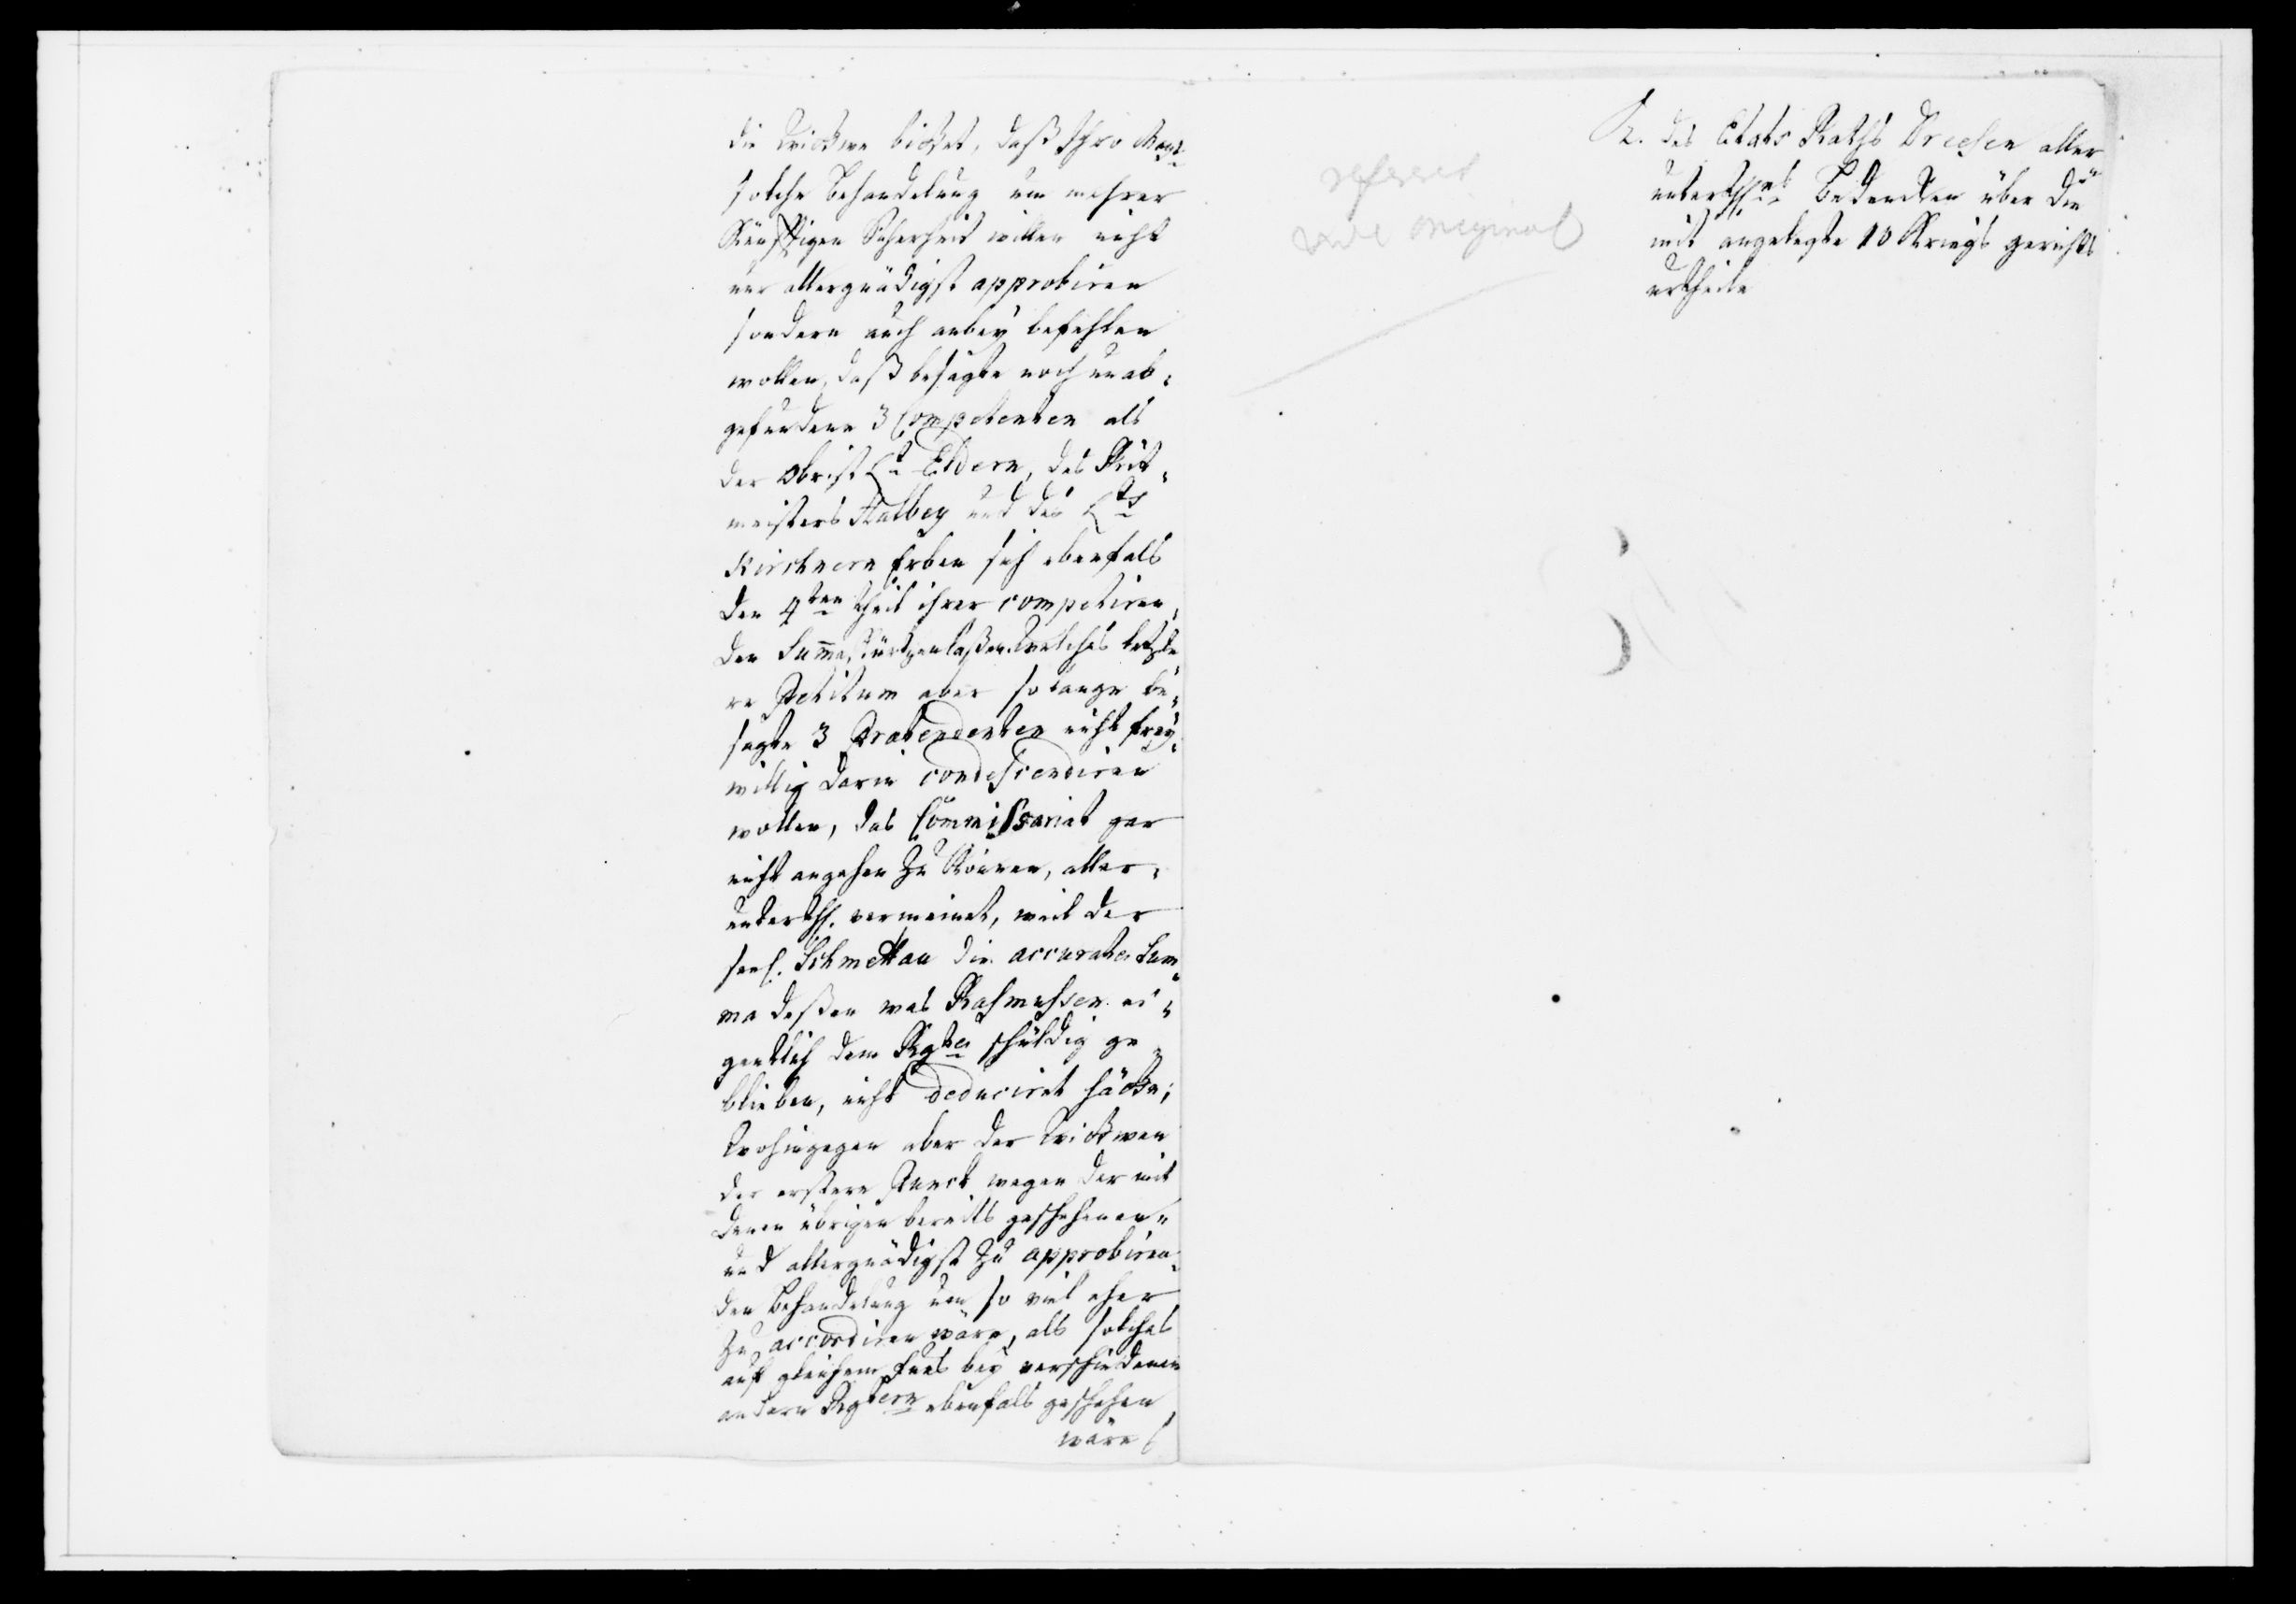 die Wittwe bittet, daß Ihro Mayt
solche Behandelung um mehrer
Künfftigen Sicherheit willen nicht
nur allergnädigst approbiren
sondern auch anbey befehlen
wollen, daß besagte noch unab¬
gefundene 3 Competenten als
der Obrist Lt Eldern, des Rit¬
meisters Halbey und des Lts
Kirchnern Erben sich ebenfals
den 4ten theil ihrer competiren¬
den Summe, Kürtzen laßen. Welches letzte¬
re Petitum aber so lange be¬
sagte 3 Prætendenten nicht frey¬
willig darin condescendiren
wollen, das Commissariat gar
nicht angehen zu Können, aller¬
unterth. vermeinet, weil der
seel. Schmettau die accurate Sum¬
ma deßen was Rasmussen ei¬
gentlich dem Rgte schuldig ge¬
blieben, nicht deduciret hätte;
Wohingegen aber der Wittwen
der erstere Punct wegen der mit
denen übrigen bereits geschehenen
und allergnädigst zu approbiren¬
den Behandelung um so viel eher
zu accordiren wäre, als solches
auf gleichem Fues bey verschiedenen
andern Rgtern ebenfals geschehen
wäre
referred
vide original
K. des Etats Raths Dreesen aller
unterthst Bedencken über die
mit angelegte 10 Kriegs gerichts
urtheile